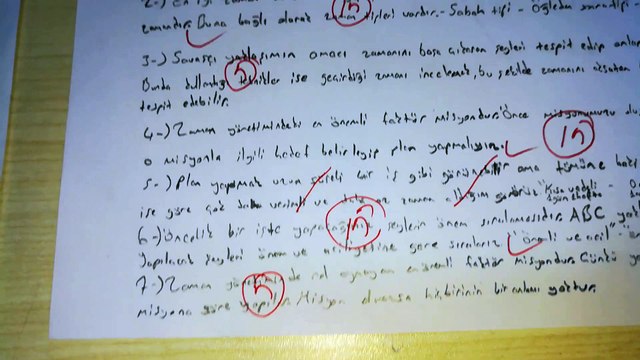 2-) En iyi zaman
zamandır. Buna bağlı olarak tipleri vardır. Sabah tipi - öğleden
15
3-) Savaşçı yaklaşımın amacı zamanını boşa çıkaran şeyleri tespit edip
Bunda kullandığı teknikler ise geçirdiği zamanı incelemek, bu şekilde zamanını
tespit edebilir.
5
4-) Zaman yönetimindeki en önemli faktör misyondur. Önce misyonumuzu
o misyonla ilgili hedef belirleyip plan yapmalıyım.
15
5-) Plan yapmak uzun süreli bir iş gibi görünebilir ama tümüne
ise göre çok daha verimli ve daha az zaman
6-) Öncelik bir işte şeylerin önem sıralamasıdır. ABC
15
Yapılacak şeyleri önem ve aciliyetine göre sıralarız. "Önemli ve acil"
7-) Zaman rol oynayan en önemli faktör misyondur. Çünkü
5
misyona göre yapılır. Misyon olmazsa hiçbirinin bir anlamı yoktur.